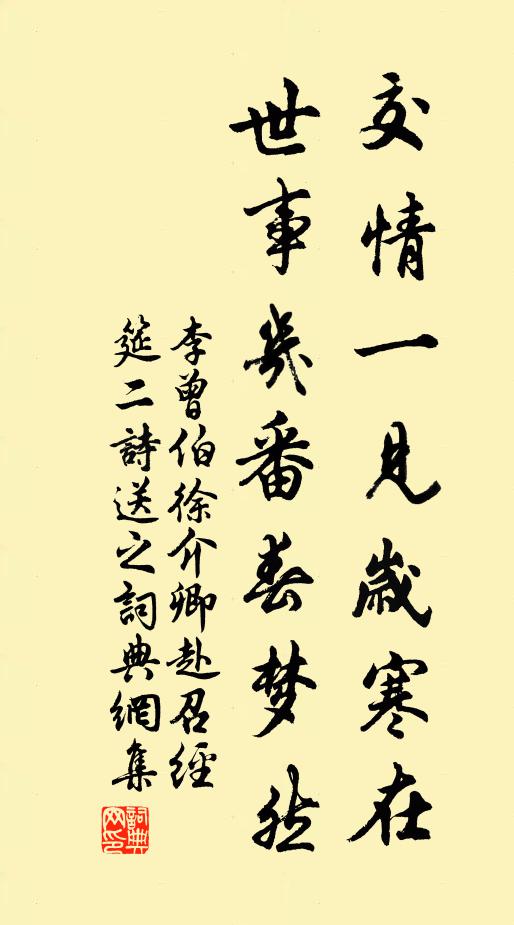 交情一见岁寒在
世事几番春梦然
李曾伯徐介卿赴召經
筵二詩送之詞典網集
詞典
网印